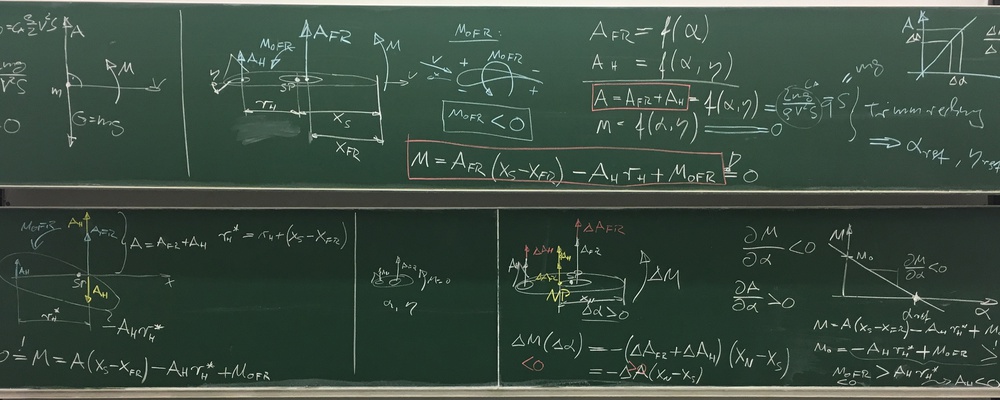 A
M
V
m
G=mg
0
M_OFR
A_H
A_FR
M
V
η
SP
r_H
x_S
x_FR
M_OFR:
V
+
M_OFR
-
M_OFR < 0
A_FR = f(α)
A_H = f(α, η)
A = A_FR + A_H = f(α,η) = = mg
M = f(α,η) = 0
Trimmrechnung
⇒ α_ref, η_ref
M = A_FR (x_S - x_FR) - A_H r_H + M_OFR = 0
A
Δα
M_OFR
A_H
A_FR
A = A_FR + A_H
r_H* = r_H + (x_S - x_FR)
A_H
SP
A_H
x
r_H*
- A_H r_H*
0 = M = A(x_S - x_FR) - A_H r_H* + M_OFR
α, η
ΔA_FR
ΔA_H
A_H
A_FR
NP
ΔM
Δα > 0
ΔM(Δα) = -(ΔA_FR + ΔA_H) (x_N - x_S)
< 0
= -ΔA (x_N - x_S)
∂M/∂α < 0
∂A/∂α > 0
M
M_0
∂M/∂α < 0
α_ref
α
M = A(x_S - x_FR) - A_H r_H* + M
M_0 = - A_H r_H* + M_OFR >
M_OFR > A_H r_H*
< 0
A_H < 0